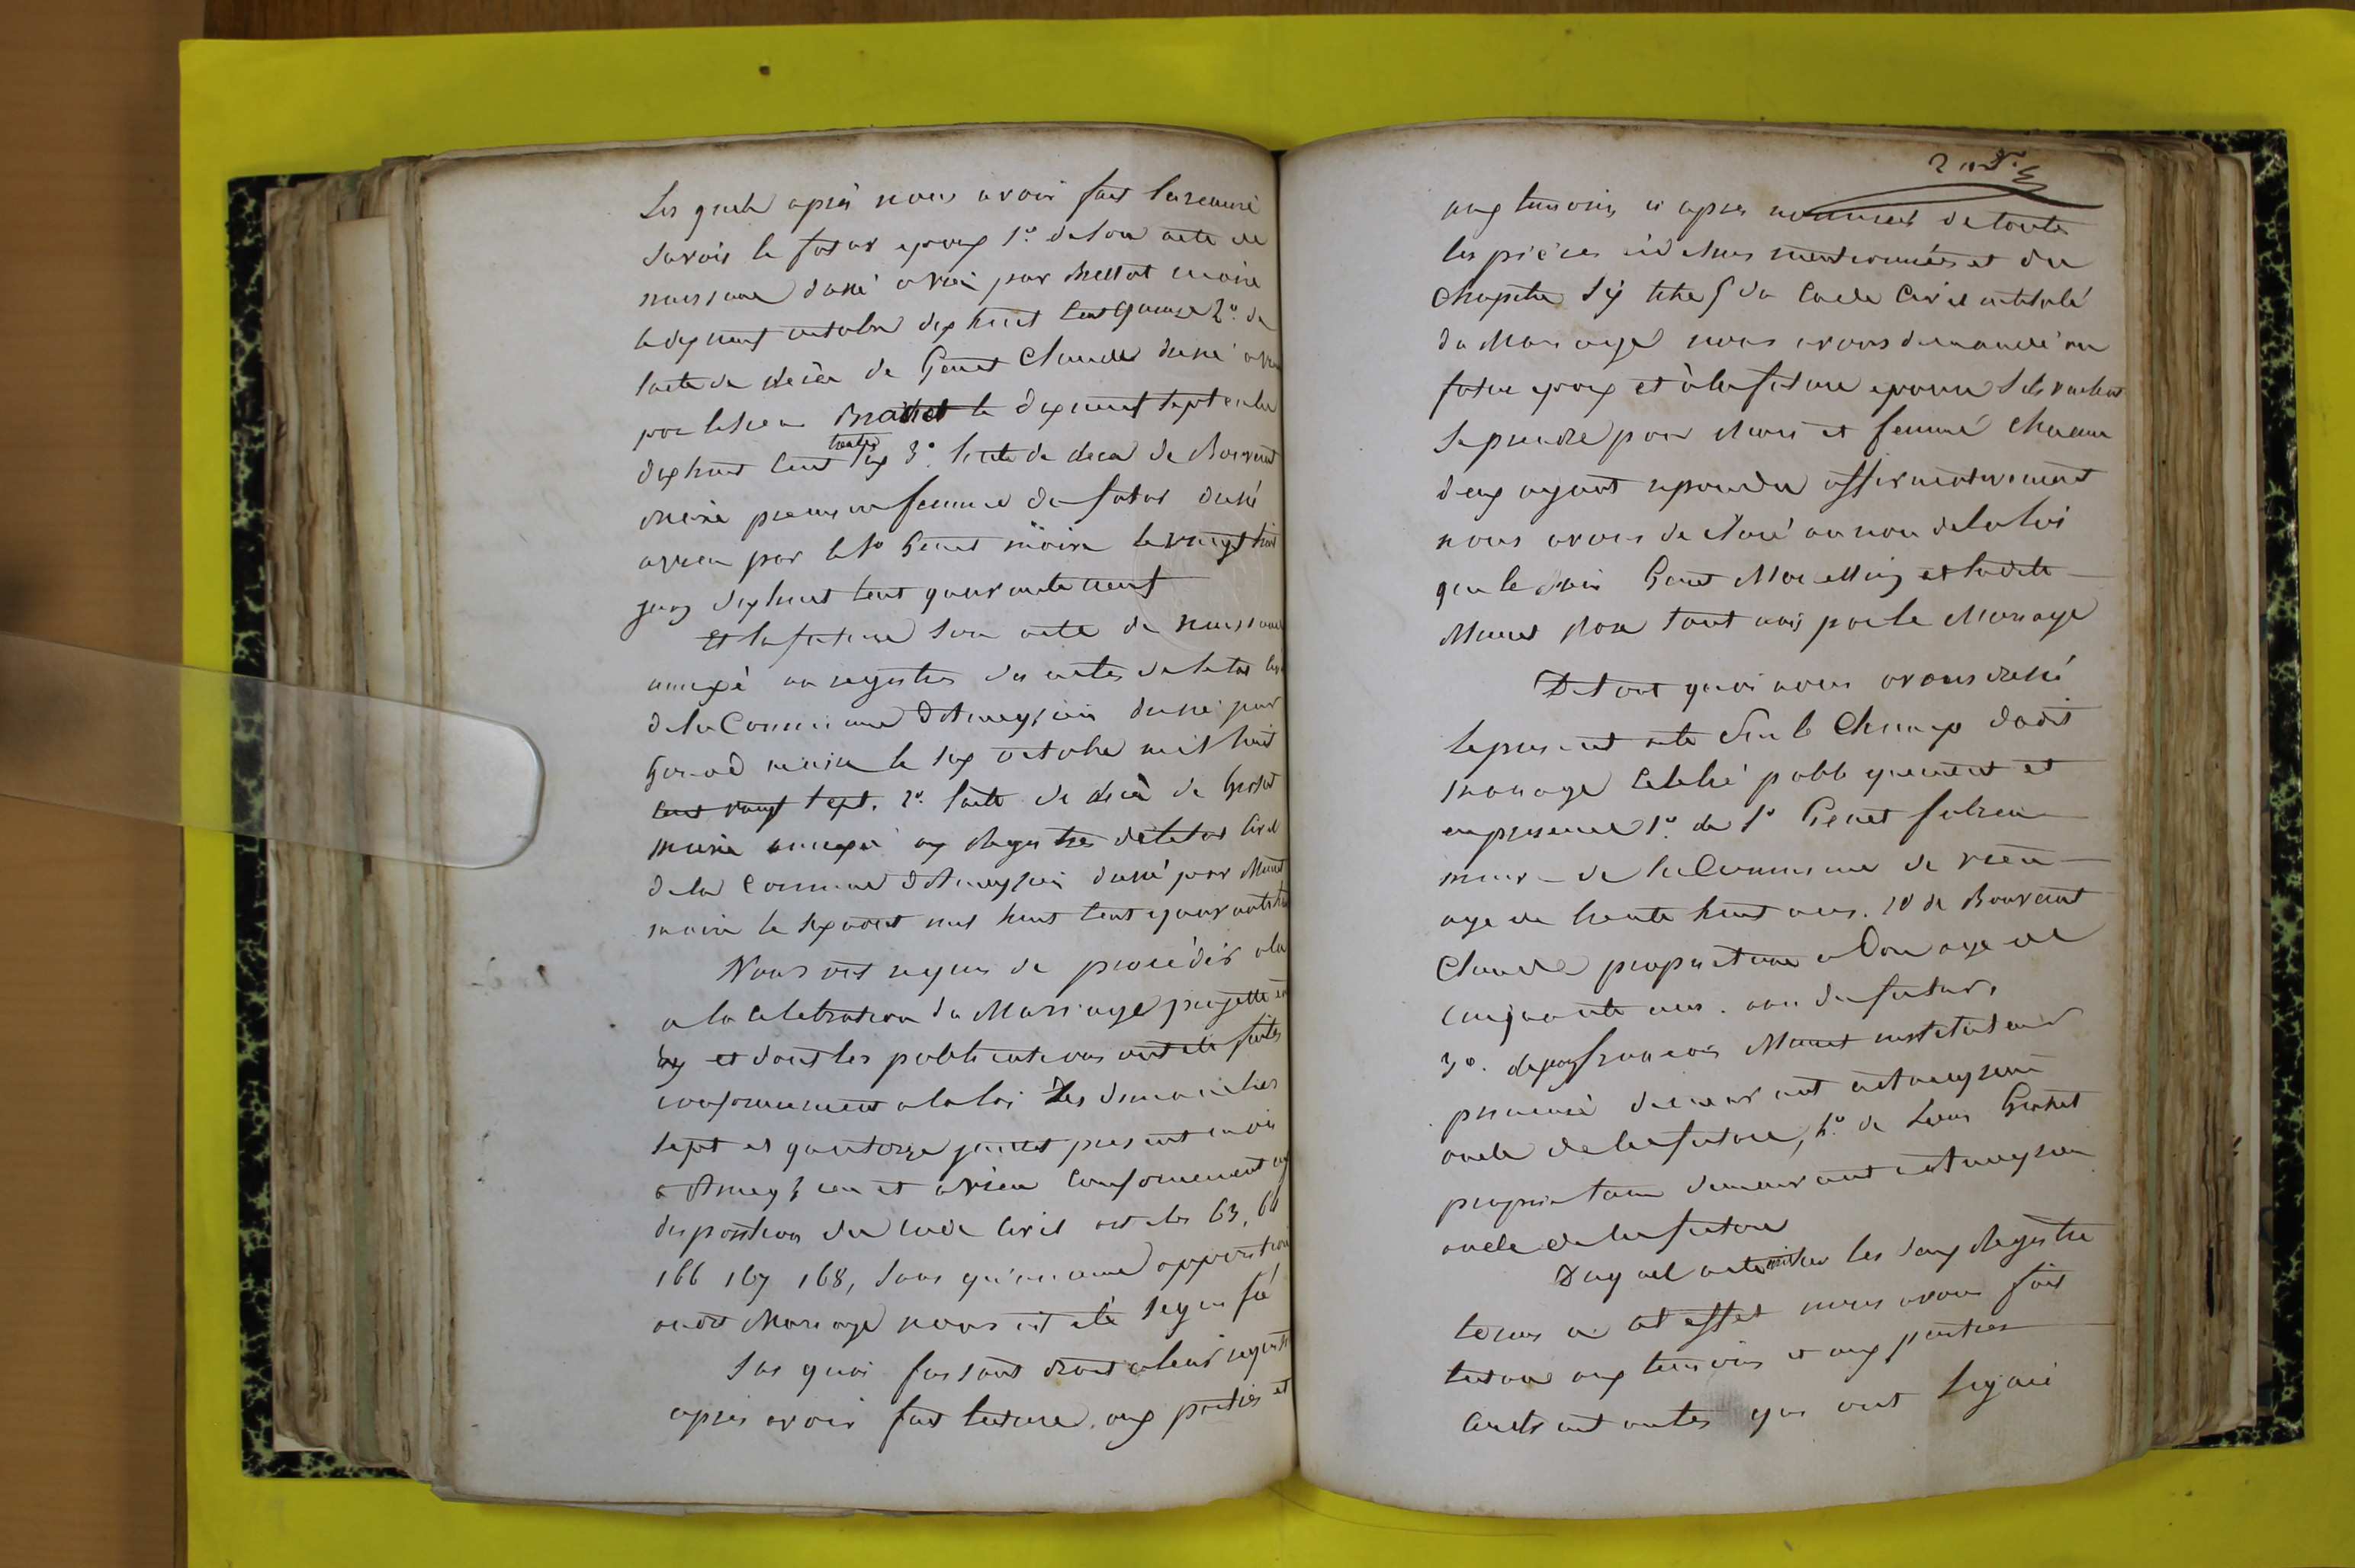 Les quels après nous avoir fait la remise
Savoir le futur epoux 1º. de son acte de
naissance dressé a vieu par maire
le dix neuf octobre dix huit cent quinze 2º. de
l'acte de décès de Genet Claude dressé a vieu
par le sieur le dix neuf septembre
dix huit cent trente six 3º. l'acte de deces de Bourvent
première femme du futur dressé
a vieu par le sr Genet maire le vingt huit
dix huit cent quarante neuf
Et la future son acte de naissance
annexé au registre des actes de l'etat civil
de la Commune d'Ameyzieu dressé par
maire le six octobre mil huit
cent vingt sept. 2º. l'acte de décès de Grobet
annexé aux Registres de l'etat Civil
de la Commune d'Ameyzieu dressé par Munet
maire le six aout mil huit cent quarante
Nous ont requis de procéder a la
a la celebration du Mariage projetté entre
eux et dont les publications ont été faites
conformement a la loi Les dimanches
sept et quatorze present mois
a Ameyzieu et a vieu conformement aux
dispositions du code civil articles 63, 64
166 167 168, sans qu'aucune opposition
audit Mariage nous ait été signifié
Sur quoi faisant droit a leur requisition
apres avoir fait lecture aux parties et
aux temoins ci apres nommés de toutes
les pièces ci dessus mentionnées et du
Chapitre Six titre 5 du Code Civil intitulé
du Mariage nous avons demandé au
futur epoux et à la future epouse s'ils veulent
se prendre pour Mari et femme Chacun
d'eux ayant repondu affirmativement
nous avons declaré au nom de la loi
que le Genet Marcellin et la dite
Munet sont unis par le Mariage
De tout quoi nous avons dressé
le present acte sur le Champ dudit
mariage celebré publiquement et
en presence 1º. de sr Genet
maire de la Commune de vieu
age de trente huit ans. 2º de Bourvent
Claude proprietaire a age de
cinquante ans. du futur,
3º. de françois Munet instituteur
primaire demeurant a Ameyzieu
oncle de la future, 4º. de Grobet
proprietaire demeurant a Ameyzieu
oncle de la future
Duquel acte les deux Registres
tenus a cet effet nous avons fait
lecture aux temoins et aux parties
contractantes qui ont signé